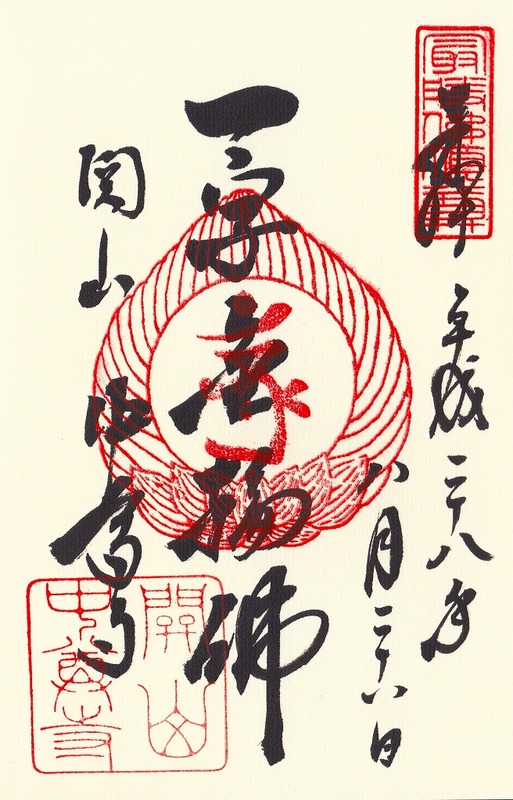 奉拝
平成二十八年
八月二十八日
一字金輪佛
関山
中尊寺
關山
中尊寺